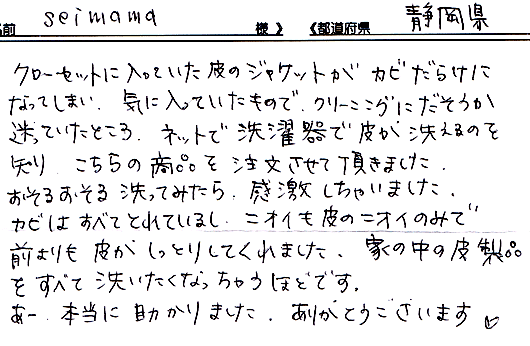 名前 seimama 様 》 《都道府県 静岡県
クローセットに入っていた皮のジャケットが カビだらけに
なってしまい、気に入っていたもので、クリーニングにだそうか
迷っていたところ、ネットで洗濯器で皮が洗えるのを
知り、こちらの商品を注文させて頂きました。
おそるおそる洗ってみたら、感激しちゃいました。
カビはすべてとれているし、ニオイも皮のニオイのみで
前よりも皮がしっとりしてくれました、家の中の皮製品
をすべて洗いたくなっちゃうほどです。
あー、本当に助かりました、ありがとうございます♡